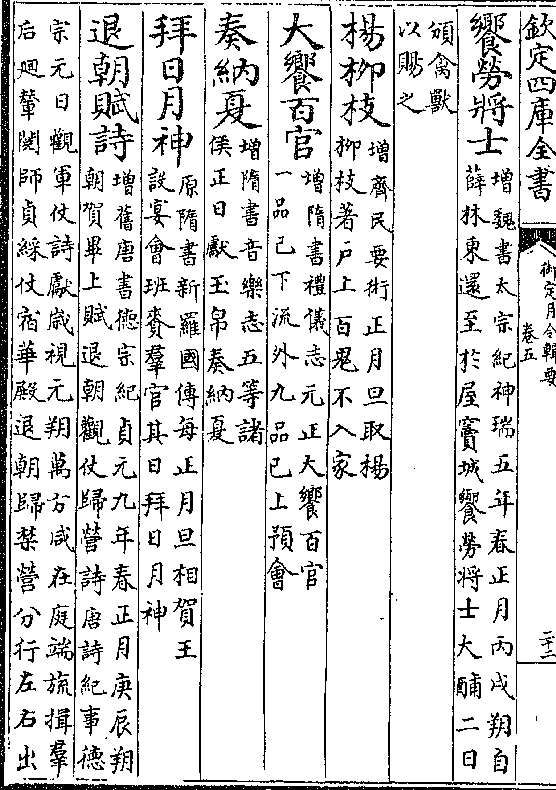 欽定四庫全書
御定月令輯要
卷五
二十二
饗勞將士
增魏書太宗紀神瑞五年春正月丙戌朔自
薛林東還至於屋竇城饗勞將士大酺二日
頒禽獸
以賜之
楊栁枝
增齊民要術正月旦取楊
栁枝著戸上百鬼不入家
大饗百官
增隋書禮儀志元正大饗百官
一品已下流外九品已上預會
奏納夏
增隋書音樂志五等諸
侯正日獻玉帛奏納夏
拜日月神
原隋書新羅國傳每正月旦相賀王
設宴會班賚羣官其日拜日月神
退朝賦詩
增舊唐書徳宗紀貞元九年春正月庚辰朔
朝賀畢上賦退朝觀仗歸營詩唐詩紀事德
宗元日觀軍仗詩獻歳視元朔萬方咸在庭端旒揖羣
后廻輦閱師貞綵仗宿華殿退朝歸禁營分行左右出